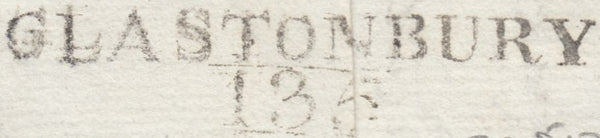 GLASTONBURY
135